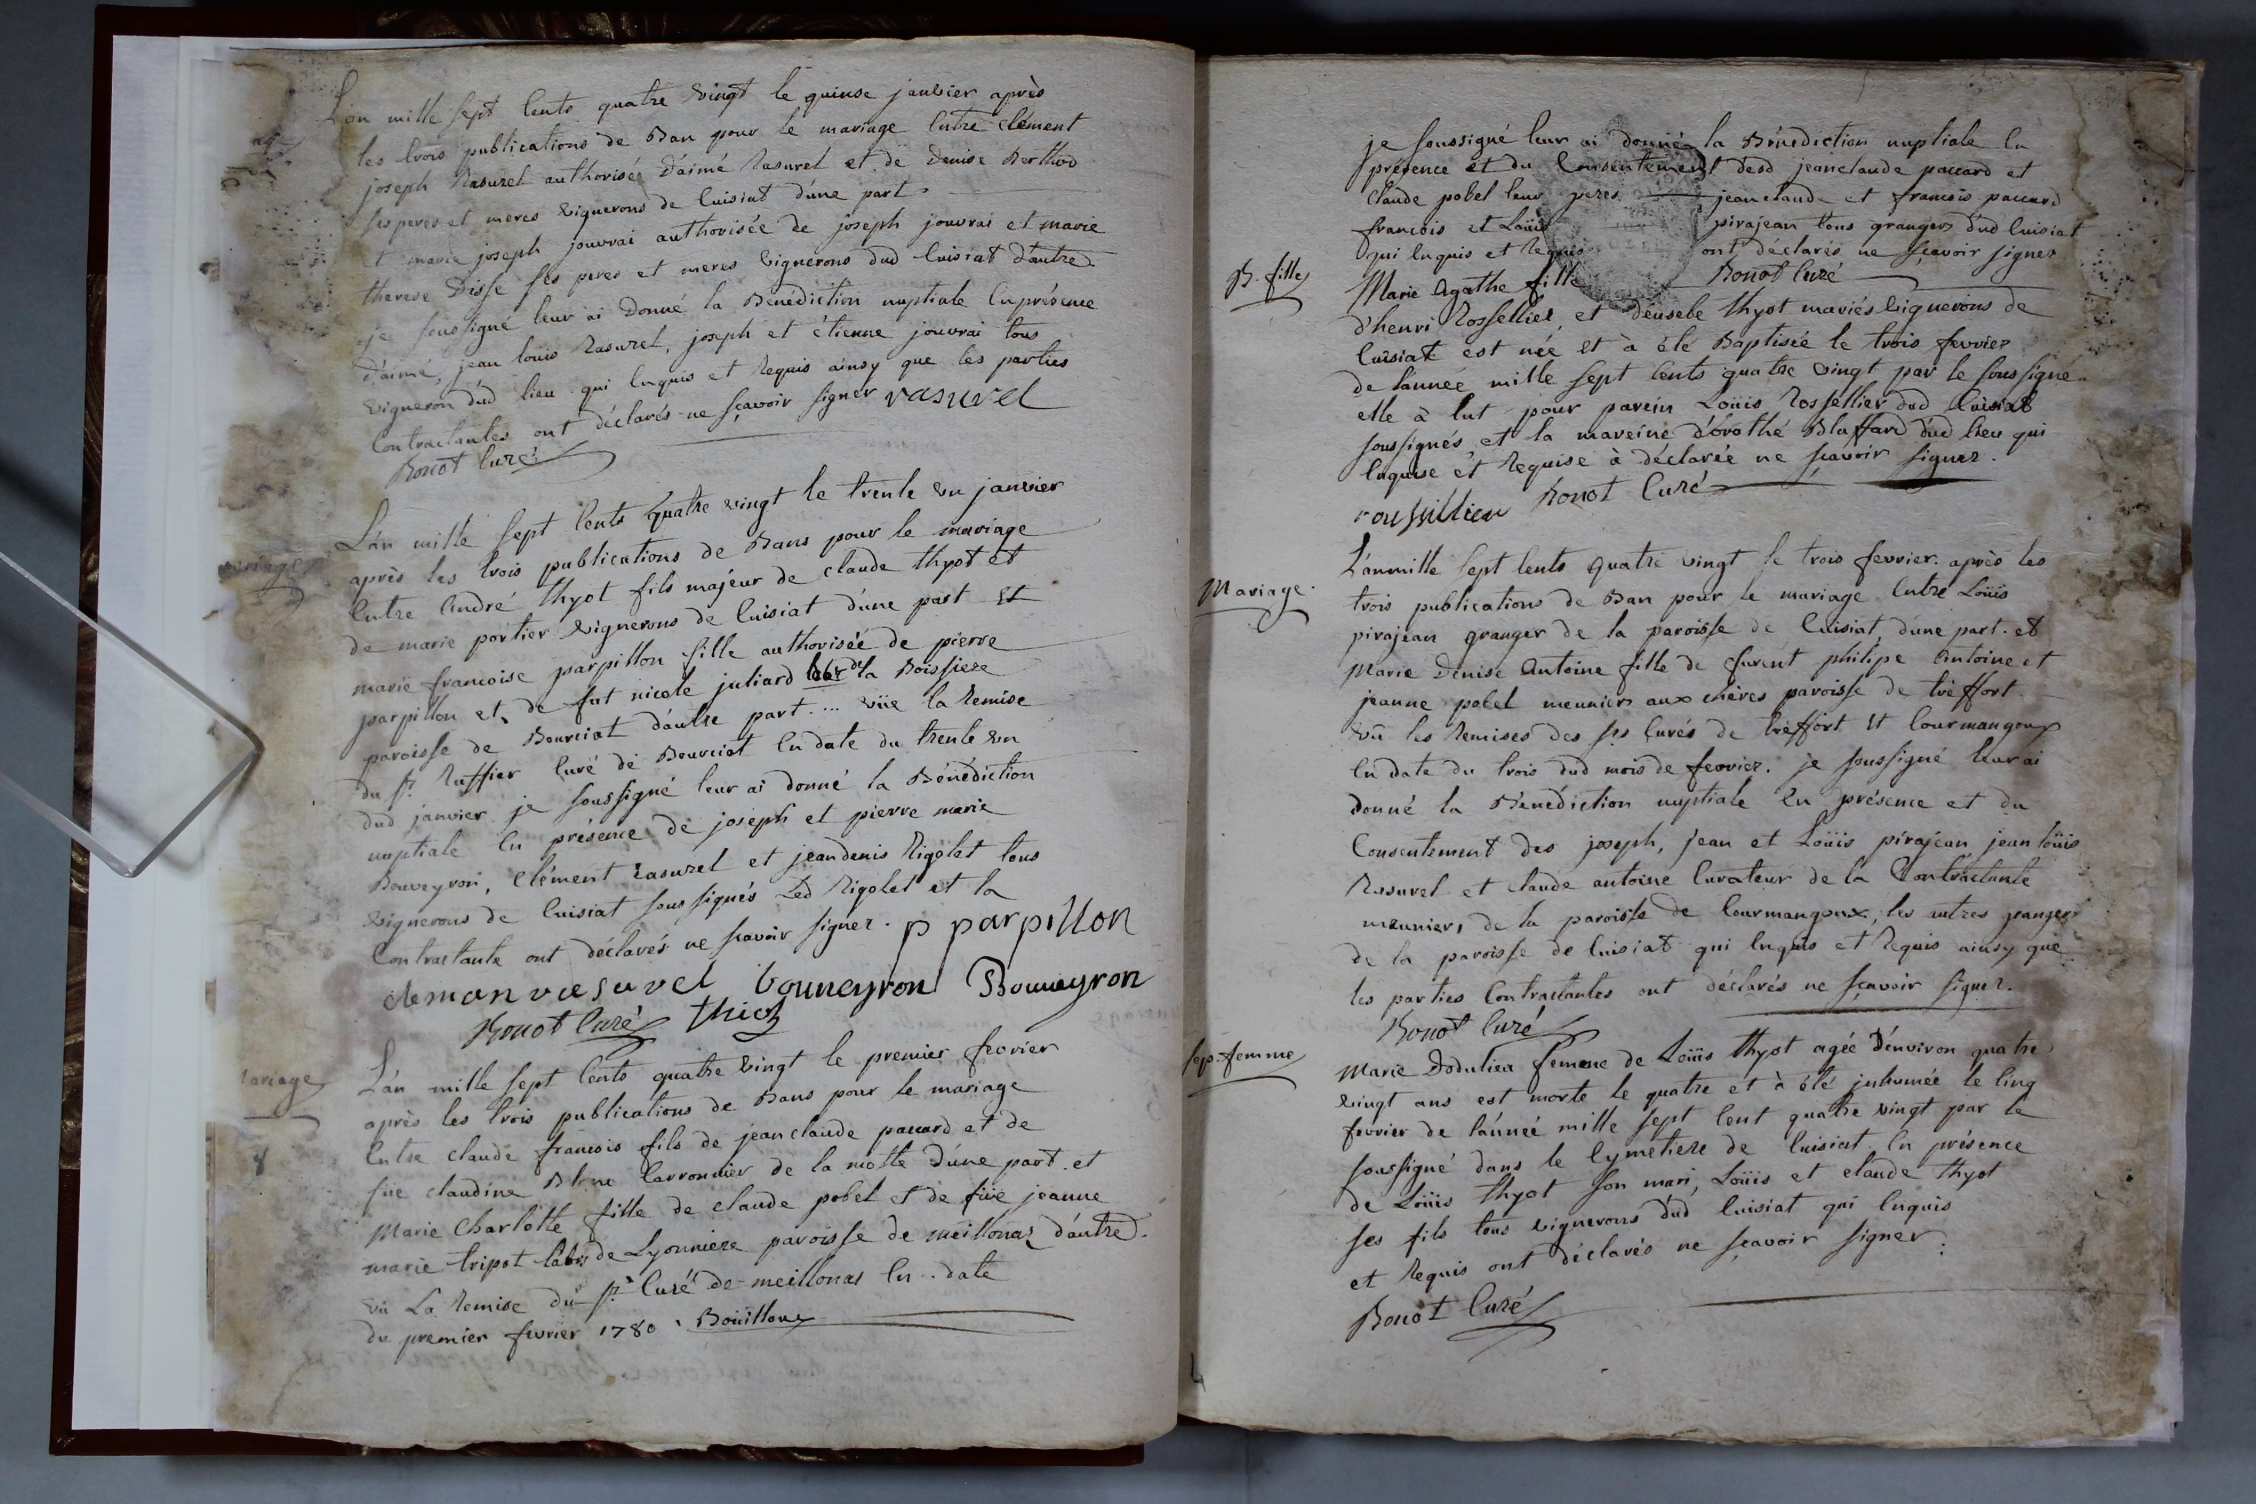 L'an mille sept cents quatre vingt le quinse janvier après
les trois publications de Ban pour le mariage entre clément
joseph Rasurel authorisée d'aimé Rasurel et de Denise Berthod
ses peres et meres vignerons de Cuisiat d'une part
et marie joseph jouvrai authorisée de joseph jouvrai et marie
therese Disse ses peres et meres vignerons dud Cuisiat d'autre
je soussigné leur ai Donné la Bénédiction nuptiale en présence
d'aimé, jean loüis Rasurel, joseph et étienne jouvrai tous
vigneron dud lieu qui enquis et Requis ainsy que les parties
Contractantes ont déclarés ne sçavoir signer rasurel
Bonot Curé
mariage
L'an mille sept Cents quatre vingt le trente un janvier
après les trois publications de Bans pour le mariage
entre André thyot fils majeur de claude thyot et
de marie portier vignerons de Cuisiat d'une part Et
marie francoise parpillon fille authorisée de pierre
parpillon et de fut nicole juliard de la Boissiere
paroisse de Bourciat d'autre part ... vüe la Remise
du sr. Ruffier Curé de Bourciat en date du trente un
dud janvier je soussigné leur ai donné la Bénédiction
nuptiale en présence de joseph et pierre marie
Bouveyron, clément rasurel et jeandenis Rigolet tous
vignerons de Cuisiat soussignés led Rigolet et la
Contractante ont déclarés ne sçavoir signer. p parpillon
cleman rasurel bouueyron Bouueyron
Bonot Curé thiot
mariage
L'an mille sept Cents quatre vingt le premier fevrier
après les trois publications de Bans pour le mariage
entre claude francois fils de jean claude paccard et de
füe claudine Blanc Carronnier de la motte d'une part et
Marie Charlotte fille de claude pobel et de füe jeanne
marie tripot labrs de Lyonniere paroisse de meillonaz d'autre.
vü La Remise du sr. Curé de meillonas en date
du premier fevrier 1780. Boüilloux
je soussigné leur ai donné la Bénédiction nuptiale en
présence et du Consentement desd jeanclaude paccard et
claude pobel leurs peres jeanclaude et francois paccard
francois et Loüis pirajean tous grangers dud Cuisiat
qui enquis et Requis ont déclarés ne sçavoir signer
Bonot Curé
B. fille
Marie Agathe fille
d'henri Rossellier et d'eusebe thyot mariés vignerons de
Cuisiat est née et à été Baptisée le trois fevrier
de l'année mille sept Cents quatre vingt par le soussigné
elle à eut pour parein Loüis Rossellier dud Cuisiat
soussignés et la mareine d'orothé Bluffard dud lieu qui
enquise et Requise à déclarée ne sçavoir signer.
roussillier Bonot Curé
Mariage.
L'an mille sept Cents quatre vingt le trois fevrier. après les
trois publications de Ban pour le mariage entre Loüis
pirajean granger de la paroisse de Cuisiat, d'une part. et
Marie Denise Antoine fille de furent philipe Antoine et
jeanne pobel meuniers aux chères paroisse de tréffort.
vü les Remises des srs Curés de tréffort et Courmangoux
en date du trois dud mois de fevrier. je soussigné leur ai
donné la Bénédiction nuptiale en présence et du
Consentement des joseph, jean et Loüis pirajean jean loüis
Rasurel et claude antoine Curateur de la Contractante
meuniers de la paroisse de Courmangoux, les autres grangers
de la paroisse de Cuisiat qui enquis et Requis ainsy que
les parties Contractantes ont déclarés ne sçavoir signer.
Bonot Curé
sep. femme
Marie Dodulieu femme de Loüis thyot agée d'environ quatre
vingt ans est morte le quatre et à été inhumée le cinq
fevrier de l'année mille sept Cent quatre vingt par le
soussigné dans le Cymetiere de Cuisiat en présence
de Loüis thyot son mari, Loüis et claude thyot
ses fils tous vignerons dud Cuisiat qui enquis
et Requis ont déclarés ne sçavoir signer.
Bonot Curé